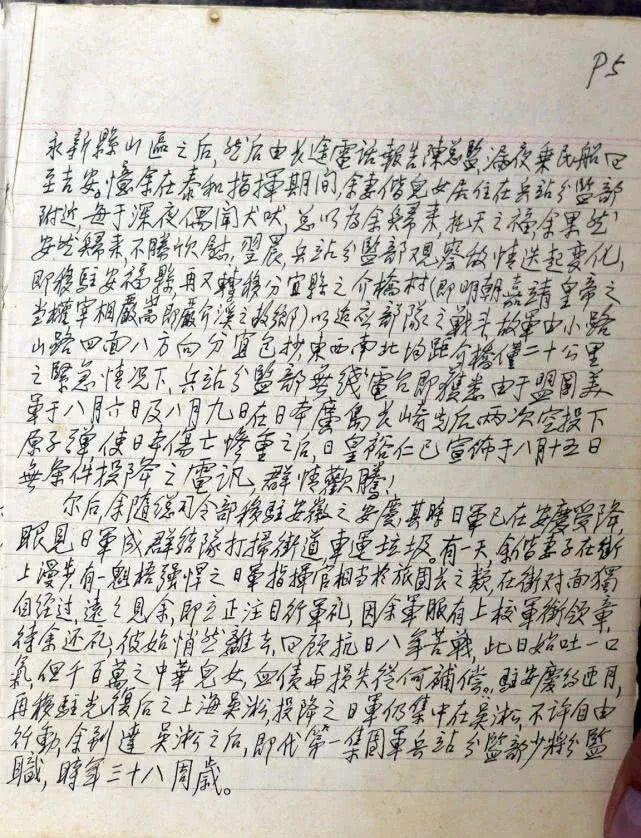 P5
永新縣山區之后,然后由长途電話報告陳总監,漏夜乗民船回
至吉安。憶余在泰和指揮期间,余妻偕兒女居住在兵站分監部
附近,每于深夜偶闻犬吠,总以为余歸来,托天之福余果然
安然歸来不勝忻慰,翌晨,兵站分監部观察敌情迭起变化,
即移駐安福縣再又轉移分宜縣之介橋村(即明朝嘉靖皇帝之
当權宰相嚴嵩即嚴介溪之故鄉)以适应部隊之战斗敌軍由小路
山路四面八方向分宜包抄東西南北均距介橋僅二十公里
之緊急情况下,兵站分監部無线電台即獲悉由于盟国美
軍于八月六日及八月九日在日本廣島長崎先后两次空投下
原子弹使日本傷亡惨重之后,日皇裕仁已宣佈于八月十五日
無条件投降之電讯,群情歡騰!
尔后,余随總司令部移駐安徽之安慶,其時日軍已在安慶受降,
眼見日軍成群结隊打掃街道,車運垃圾。有一天,余偕妻子在街
上漫步有一魁梧强悍之日軍指揮官相当於旅团長之類,在街对面獨
自经过,遠之見余,即立正注目行軍礼,因余軍服有上校軍銜领章,
待余还礼,彼始悄然離去,回顾抗日八年苦戦,此日始吐一口
氣,但千百萬之中華兒女,血债与损失從何補偿。駐安慶约匝月,
再移駐光復后之上海吴淞,投降之日軍仍集中在吴淞,不许自由
行動,余到達吴淞之后,即代第一集团軍兵站分監部少将分監
職,時年三十八周歲。